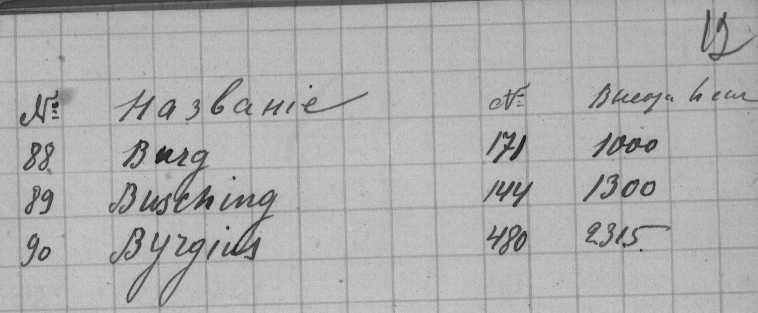 12
№ Названіе № Высота h em
88 Burg 171 1000
89 Busching 144 1300
90 Byrgius 480 2315